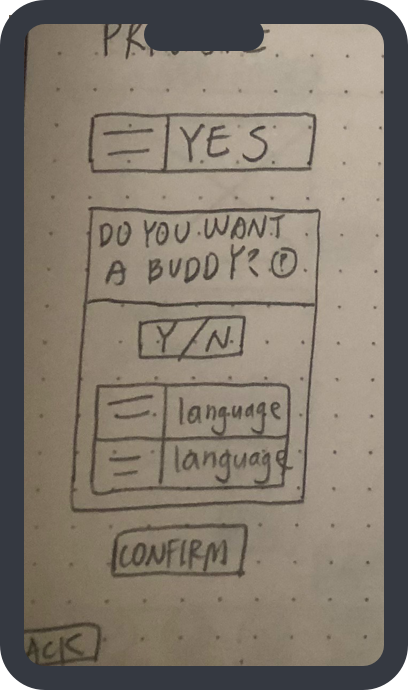 YES
DO YOU WANT
A BUDDY? ?
Y/N
language
language
CONFIRM